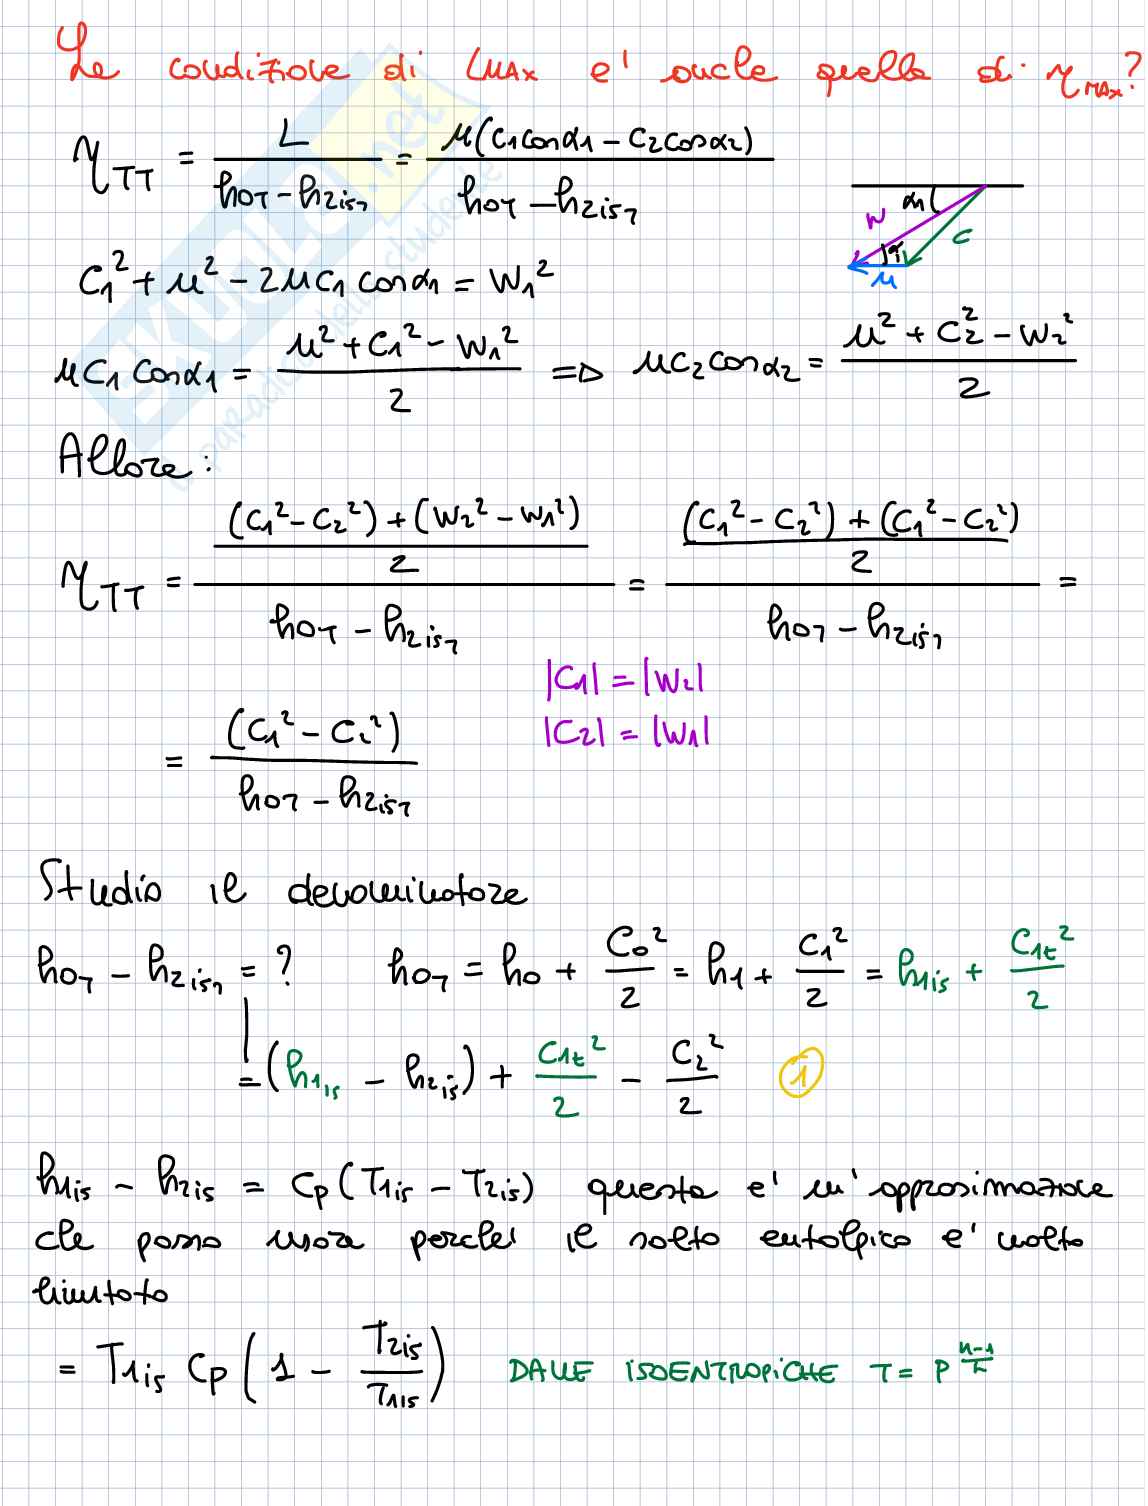 La condizione di LMAX e' anche quella di ηMAX?
ηTT = L / (h0T - h2isT) = u(c1cosα1 - c2cosα2) / (h0T - h2isT)
α1 W C α1 u
C1² + u² - 2uc1 cosα1 = W1²
uc1 cosα1 = (u² + c1² - W1²) / 2 => uc2cosα2 = (u² + c2² - W2²) / 2
Allora:
ηTT = ((c1² - c2²) + (W2² - W1²)) / 2 / (h0T - h2isT) = ((c1² - c2²) + (c1² - c2²)) / 2 / (h0T - h2isT) =
|C1| = |W2|
|C2| = |W1|
= (c1² - c2²) / (h0T - h2isT)
Studio il denominatore
h0T - h2isT = ? h0T = h0 + C0²/2 = h1 + C1²/2 = h1is + C1t²/2
= (h1is - h2is) + C1t²/2 - C2²/2 1
h1is - h2is = Cp(T1is - T2is) questa e' un'approssimazione
che posso usare perche' il salto entalpico e' molto
limitato
= T1is Cp (1 - T2is/T1is) DALLE ISOENTROPICHE T = P^((k-1)/k)
SKUOLA.net
paradiso dello studente